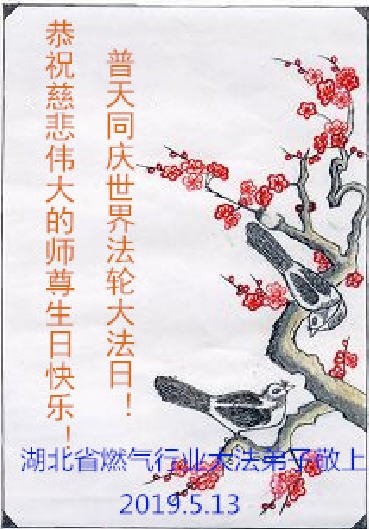 恭祝慈悲伟大的师尊生日快乐！
普天同庆世界法轮大法日！
湖北省燃气行业大法弟子敬上
2019.5.13